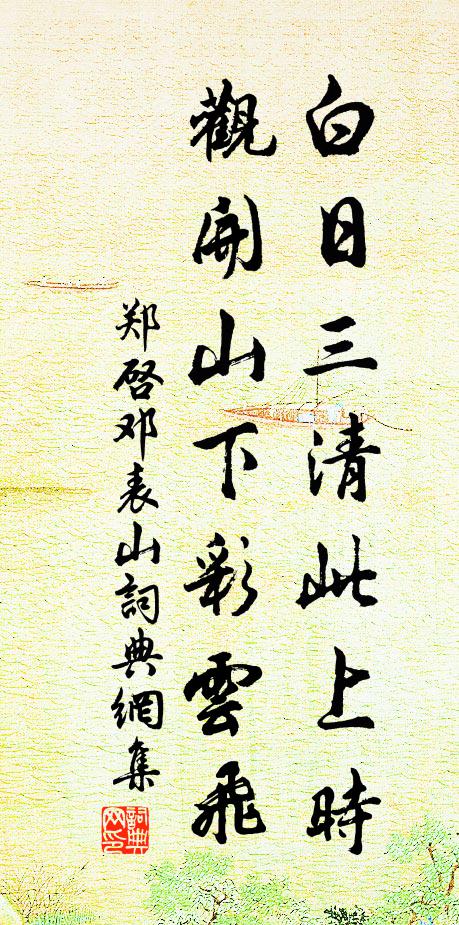 白日三清此上時
觀開山下彩雲飛
郑啓邓表山詞典網集
詞典网印